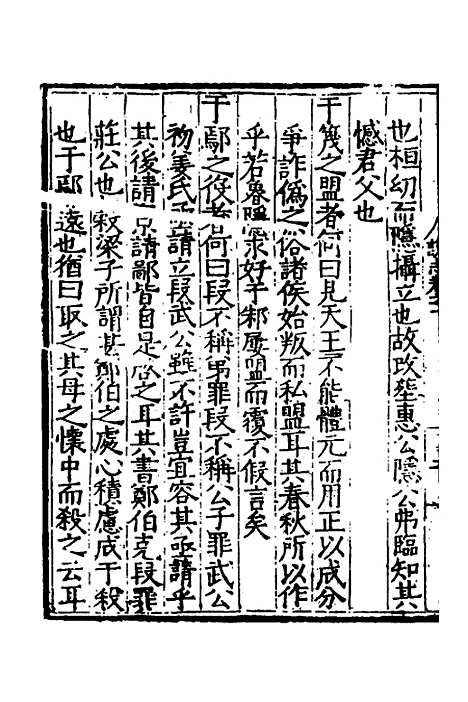 也桓幼而隱攝立也故改塟惠公隱公弗臨知其
憾君父也
于蔑之盟者何曰見天王不能體元而用正以成分
爭詐僞之俗諸侯始叛而私盟耳其春秋所以作
乎若魯隱求好于邾屢盟而覆不假言矣
于鄢之役者何曰段不稱弟罪段不稱公子罪武公
初姜氏亟請立段武公雖不許豈宜容其亟請乎
其後請京請鄙皆自是啓之耳其書鄭伯克段罪
莊公也穀梁子所謂甚鄭伯之處心積慮成于殺
也于鄢遠也猶曰取之其母之懷中而殺之云耳